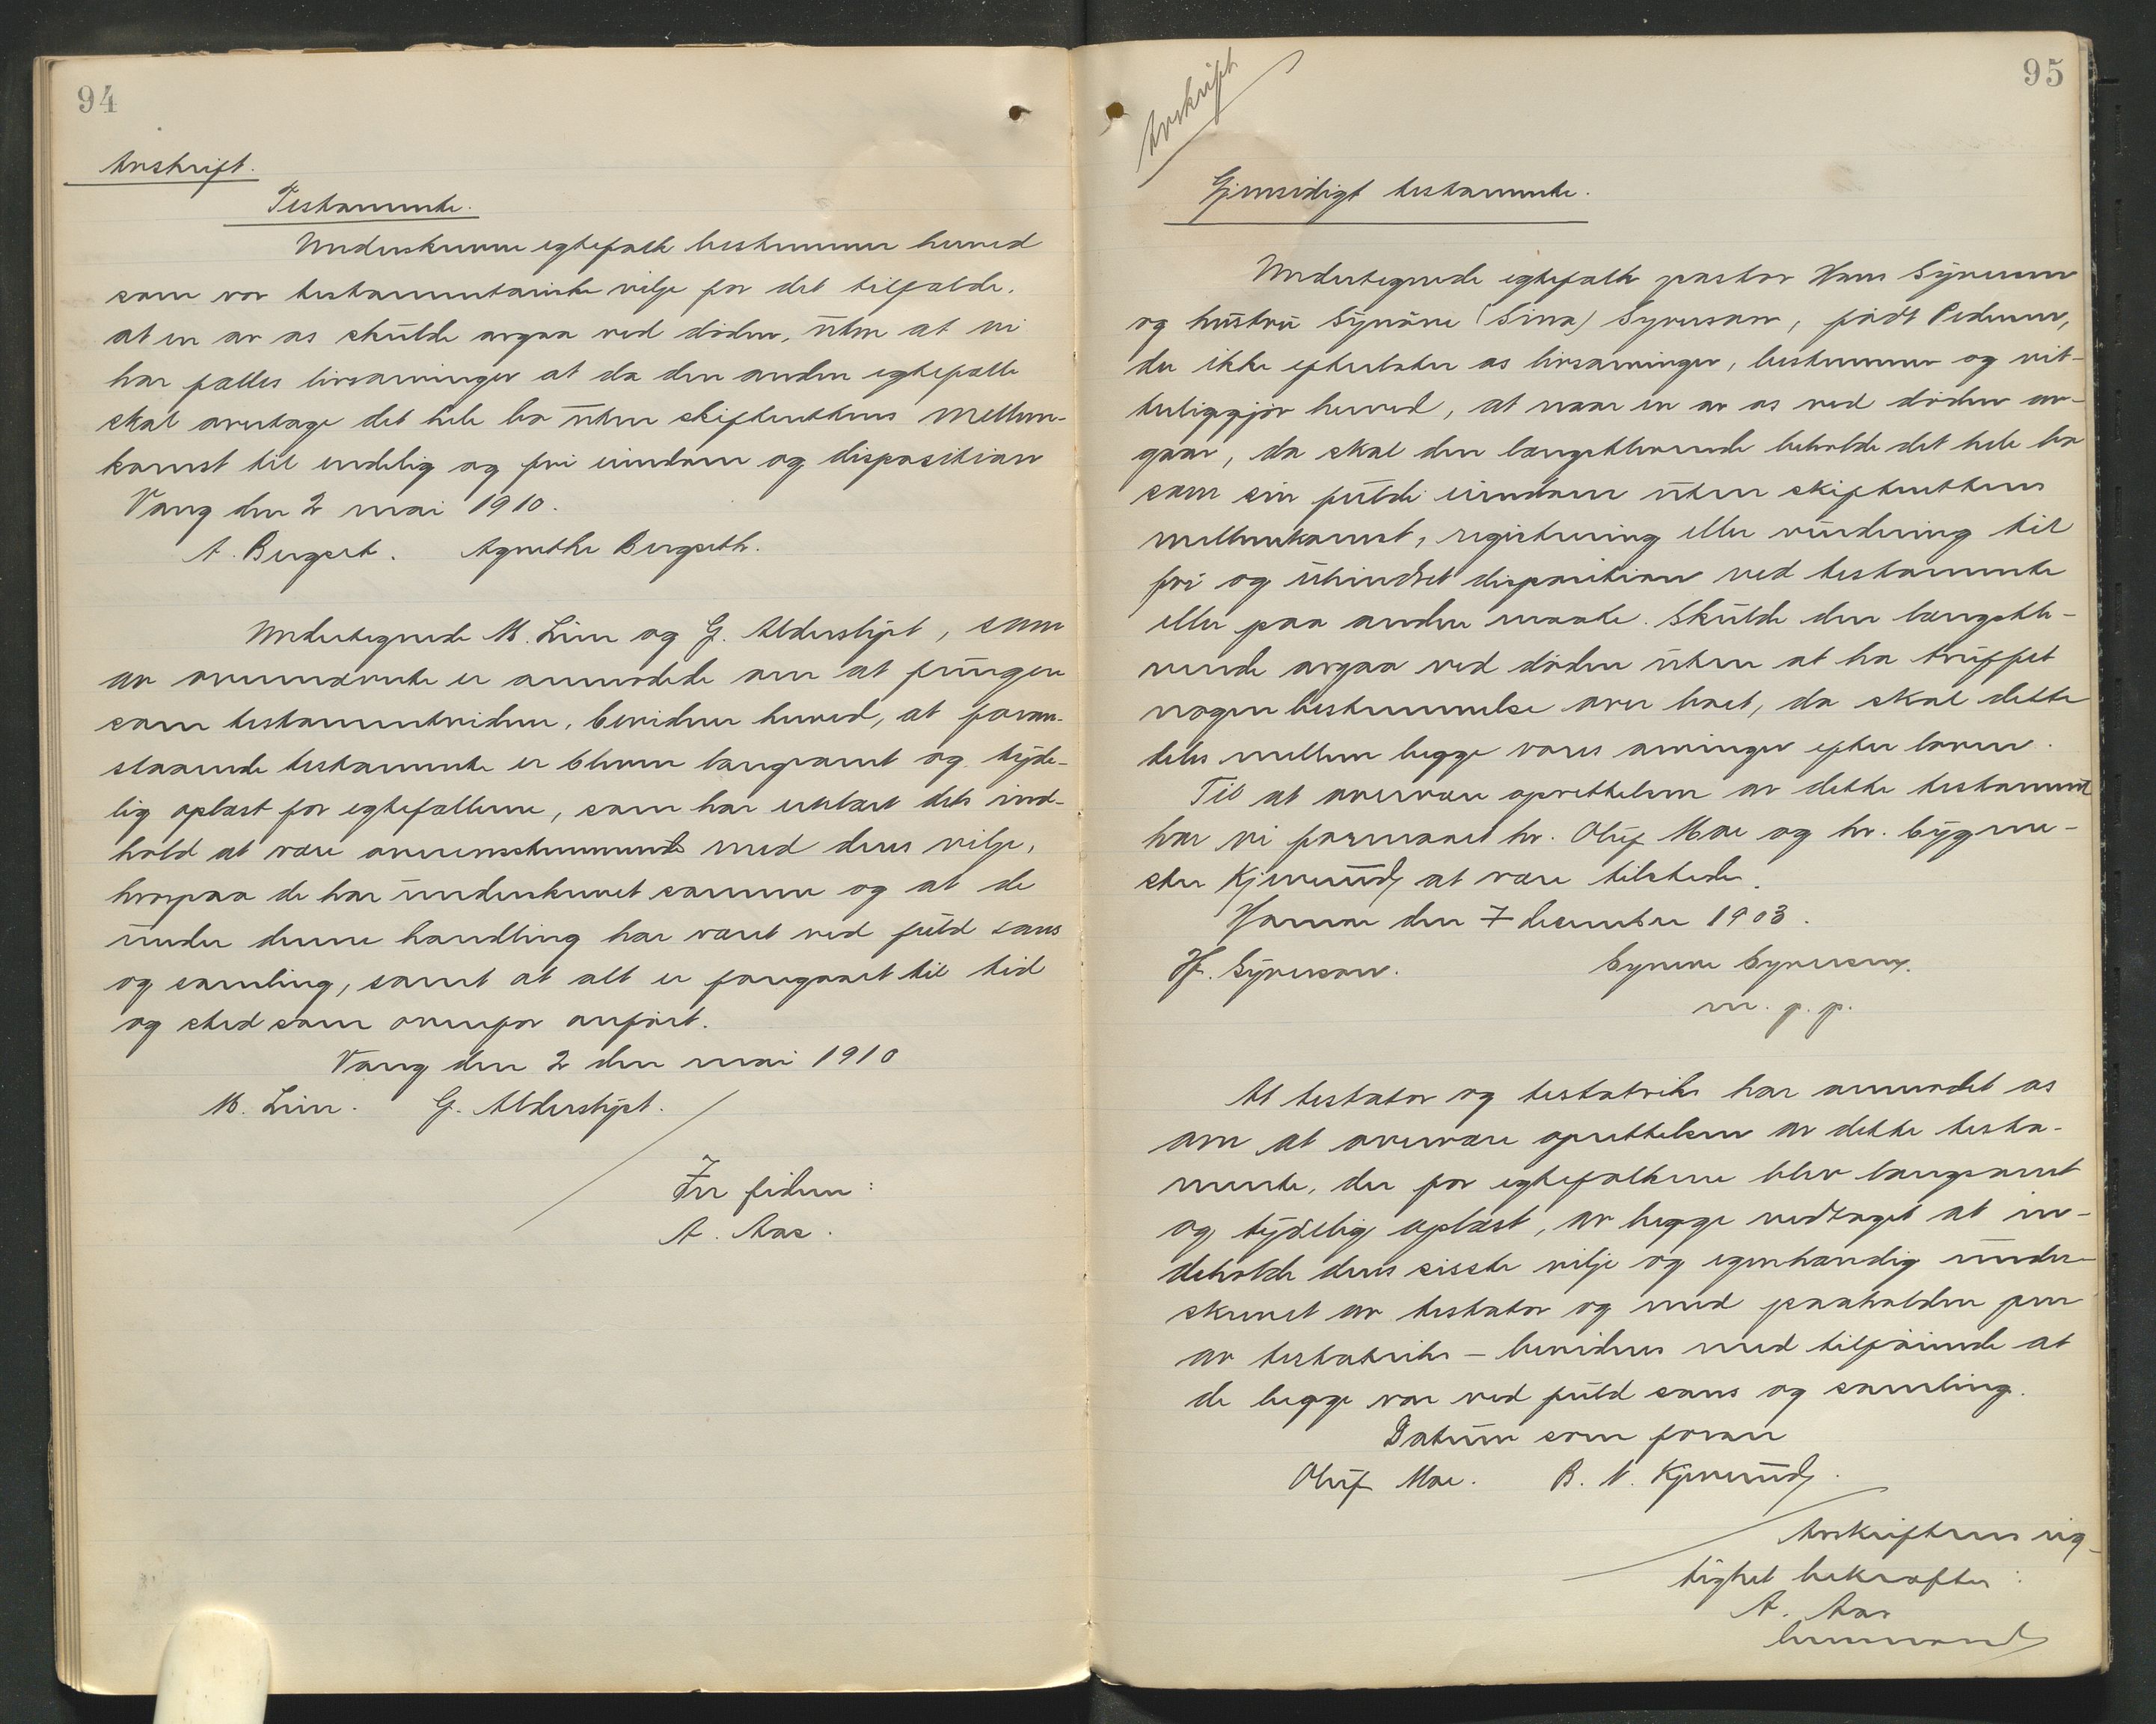 94
Avskrift.
Testamente.
Underskrevne egtefolk bestemmer herved
som vor testamentariske vilje for det tilfælde,
at en av os skulde avgaa ved døden, uten at vi
har fælles livsarvinger at da den anden egtefælle
skal overtage det hele bo uten skifterettens mellem-
komst til endelig og fri eiendom og disposition
Vang den 2 mai 1910.
A. Bergset. Agnethe Bergseth.
Undertegnede M. Lien og G. Alderslyst, som
av ovennævnte er anmodede om at fungere
som testamentvidner, bevidner herved, at foran-
staaende testamente er bleven langsomt og tyde-
lig oplæst for egtefællerne, som har erklært dets ind-
hold at være overensstemmende med deres vilje,
hvorpaa de har underskrevet samme og at de
under denne handling har været ved fuld sans
og samling, samt at alt er foregaaet til tid
og sted som ovenfor anført.
Vang den 2 den mai 1910
M. Lien. G. Alderslyst.
In fidem:
A. Aas.
95
Avskrift
Gjensidigt testamente.
Undertegnede egtefolk pastor Hans Syversen
og hustru Synøve (Sina) Syversen, født Pedersen,
der ikke efterlater os livsarvinger, bestemmer og vit-
terliggjør herved, at naar en av os ved døden av-
gaar, da skal den længstlevende beholde det hele bo
som sin fulde eiendom uten skifterettens
mellemkomst, registrering eller vurdering til
fri og uhindret disposition ved testamente
eller paa anden maate. Skulde den længstle-
vende avgaa ved døden uten at ha truffet
nogen bestemmelse over boet, da skal dette
deles mellem begge vores arvinger efter loven.
Til at overvære oprettelsen av dette testament
har vi formaaet hr. Oluf Moe og hr. bygme-
ster Kjeverud at være tilstede.
Hamar den 7 december 1903.
H. Syversen. Synøve Syversen
m. p. p.
At testator og testatrix har anmodet os
om at overvære oprettelsen av dette testa-
mente, der for egtefolkene blev langsomt
og tydelig oplæst, av begge vedtaget at in-
deholde deres sisste vilje og egenhændig under-
skrevet av testator og med paaholden pen
av testatrix – bevidnes med tilføiende at
de begge var ved fuld sans og samling.
Datum som foran
Oluf Moe. B. N. Kjeverud.
Avskriftens rig-
tighet bekræfter:
A. Aas